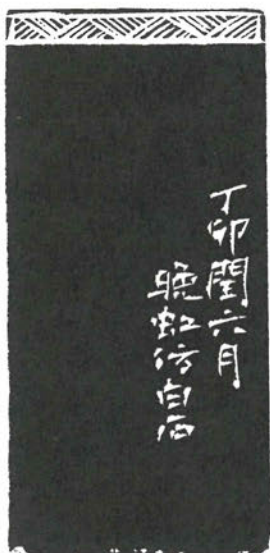 丁卯閏六月
晚虹仿白石